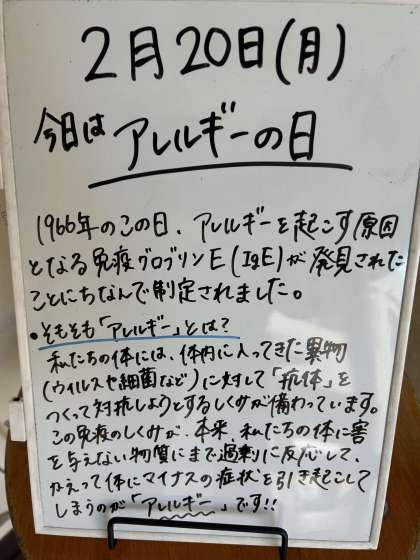 2月20日(月)
今日は アレルギーの日
1966年のこの日、アレルギーを起こす原因
となる免疫グロブリンE(IgE)が発見された
ことにちなんで制定されました。
・そもそも「アレルギー」とは?
私たちの体には、体内に入ってきた異物
(ウイルスや細菌など)に対して「抗体」を
つくって対抗しようとするしくみが備わっています。
この免疫のしくみが、本来、私たちの体に害
を与えない物質にまで過剰に反応して、
かえって体にマイナスの症状を引き起こして
しまうのが「アレルギー」です!!